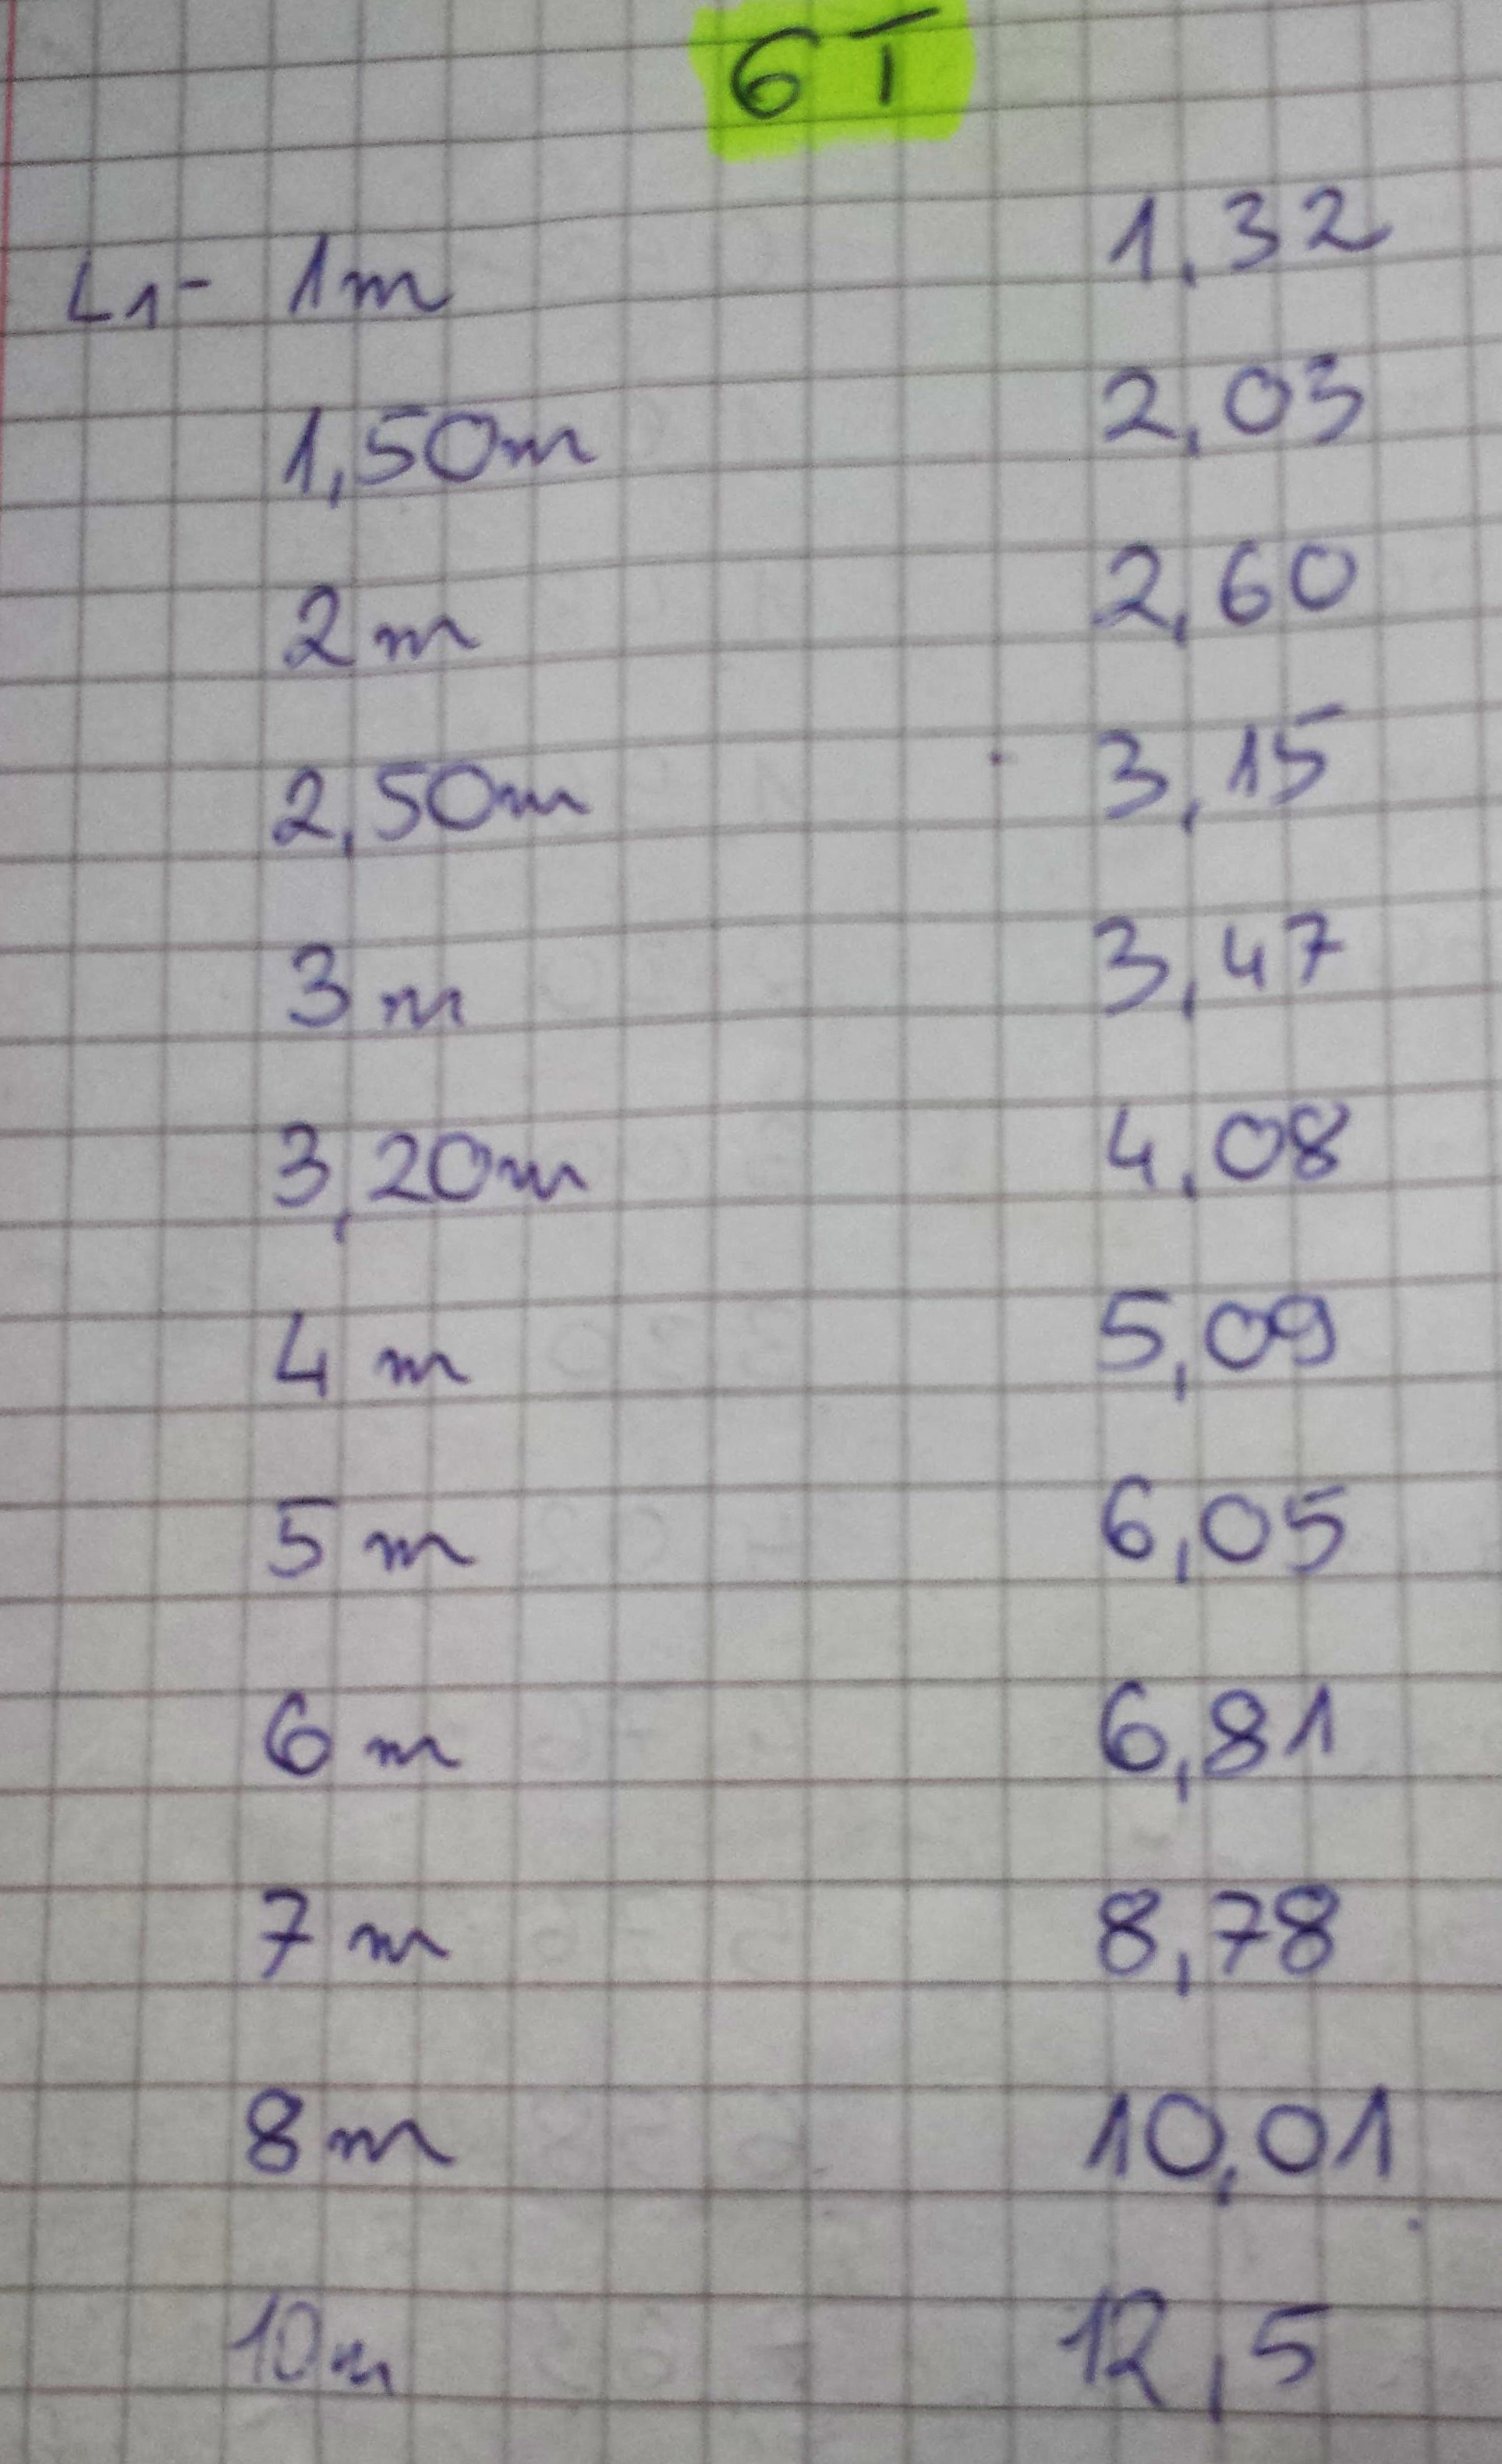 6T
L1- 1m 1,32
1,50m 2,03
2m 2,60
2,50m 3,15
3m 3,47
3,20m 4,08
4m 5,09
5m 6,05
6m 6,81
7m 8,78
8m 10,01
10m 12,5